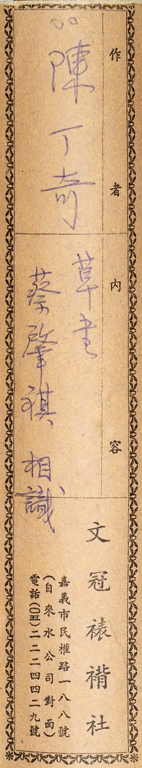 作者
陳丁奇
內容
草書
蔡肇祺 相識
文冠裱褙社
嘉義市民權路一八八號
(自來水公司對面)
電話(〇五)二二二四四二九號